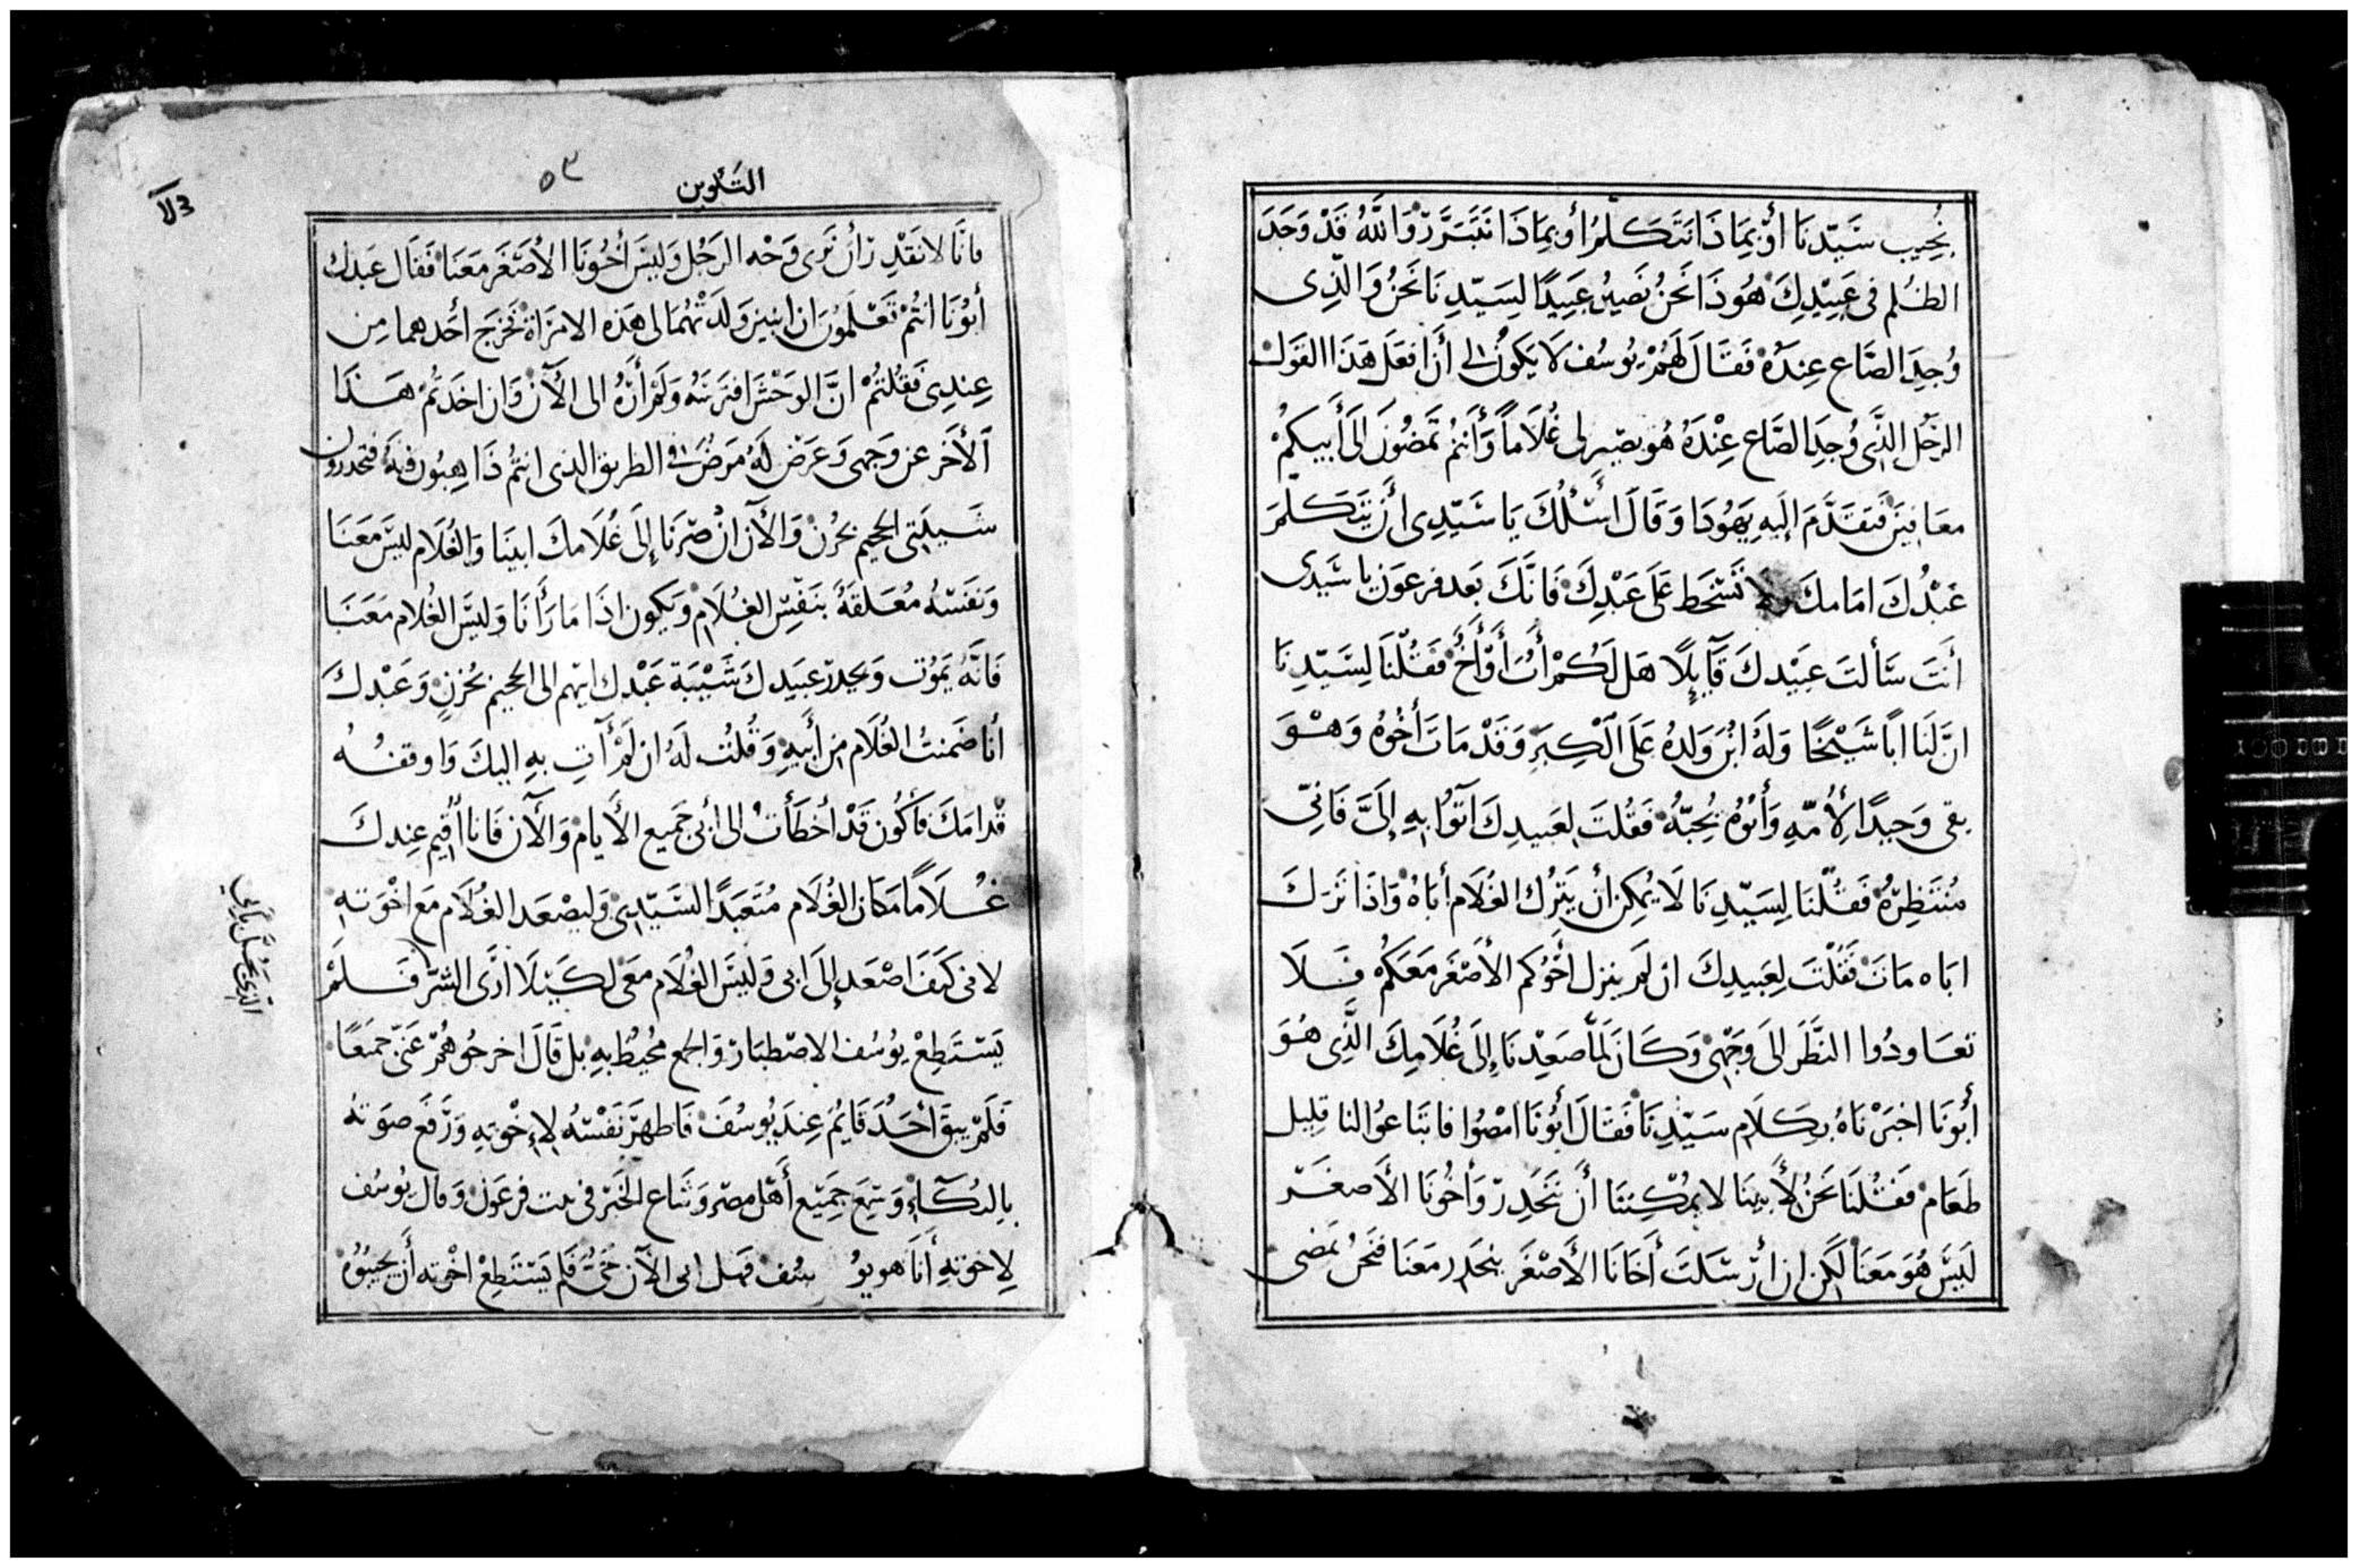 نُجِيب سَيّدنَا أوْ بِمَا ذَا نتَكَلمُ أو بِمَا ذَا نَتَبَرَّرْ وَاللَّهُ قَدْ وَجَدَ
الظُلم فى عَبِيْدِكَ هُوذَا نَحنُ نَصِيرُ عَبِيدًا لِسَيّدِنَا نَحنُ وَالّذِى
وُجِدَ الصَّاع عِندَهُ فَقَالَ لَهُمْ يُوسُف لَا يَكُونُ لى أَن افعَل هَذَا القَول
الرَجُل الَّذِى وُجِدَ الصَّاع عِنْدَهُ هُو يصِير لى غُلَامًا وَأَنتُم تَمضُونَ إلَى أَبيكمْ
معَافِينَ فَتقَدَّمَ إلَيهِ يَهُودَا وَقَالَ أسْئلُكَ يَا سَيّدِى أَن يَتكَلمَ
عَبْدُكَ امَامكَ وَلَا تَسْخَط عَلَى عَبْدِكَ فَانَّكَ بَعد فرعَون يا سَيّدى
أَنتَ سَألتَ عَبِيْدكَ قَآئِلًا هَل لَكُمْ أَبُ أَوْ أَخُ فَقُلْنَا لِسَيّدِنَا
انَّ لَنَا ابًا شَيْخًا وَلَهُ ابْنُ وَلِدهُ عَلَى الْكِبَرِ وَقَدْ مَاتَ أَخُوهُ وَهْوَ
بقى وَحِيدًا لِأُمّهِ وَأَبُوْهُ يُحِبّهُ فَقُلتَ لِعَبيدِكَ آتَوُا بِهِ إِلَىَّ فَانِّى
مُنتَظِرُهُ فَقُلْنَا لِسَيّدِنَا لَا يُمكِن أن يَترُك الغُلَام أبَاهُ وَاذَا تَرَكَ
ابَاه مَاتَ فَقُلْتَ لِعَبيدِكَ ان لَم ينزل أخُوكم الأَصْغَر مَعَكمْ فَلَا
تعَاودُوا النَظَر الَى وَجْهِى وَكَانَ لَمَّا صَعِدْنَا إلَى غُلَامِكَ الَّذِى هُوَ
أَبُونَا اخبَرْنَاهُ بِكَلَام سَيّدِنَا فَقَالَ أَبُونَا امْضُوا فابتَاعُوا لنا قلِيل
طَعَام فَقُلنَا نَحنُ لأَبِينَا لا يمُكِننَا أَن نَنحَدِر وَأخُونَا الأَصغَر
لَيسَ هُوَ مَعَنَا لَكن ان ارْسَلتَ أَخَانَا الأَصْغَر ينحَدِر مَعَنَا فنَحنُ نَمضى
التَكوين
٥٣
فانَّا لَا نَقْدِر أَن نَرَى وَجْه الرَجُل وَلَيسَ أَخُونَا الأَصْغَر مَعَنَا فَقَال عَبدك
أبُونَا أنتُمْ تَعْلَمُونَ ان ابنين وَلَدَتْهُمَا لى هَذه الامرَاة فَخرَج أَحَدهما مِن
عِندِى فَقُلتُمْ انَّ الوَحْش افترَسَهُ وَلَمْ أَرَهُ الى الآن وَان اخَذتُمْ هَذَا
الأَخَر عن وَجهِى وَعَرَض لَهُ مَرَض فى الطريق الذى انتُم ذَاهِبُون فيهِ فتحدرون
شَيبَتى الجحيم بحُزن وَالآن انْ صرْنَا إلَى غُلَامكَ ابينَا وَالغُلَام لَيسَ مَعَنَا
وَنَفسَهُ مُعَلقَةُ بنَفس الغُلَام وَيَكون اذَا مَا رَأَنَا وَلَيسَ الغُلَام مَعَنَا
فَانَّهُ يَمُوت وَيحدر عَبيدكَ شَيْبَة عَبْدك ابيهم الى الجحيم بحُزنٍ وَعَبْدكَ
أنَا ضَمنتُ الغُلَام من أَبيهِ وَقُلتُ لَهُ ان لَمْ آتِ بهِ اليكَ وَاوقفهُ
قدَامَكَ فَأَكُون قَدْ أخطَأتُ الى أبى جَميع الأَيام وَالآن فَانا أُقيم عِندكَ
غُلَامًا مَكَان الغُلَام مُتَعَبدًا لسَيّدِى وَليصْعَد الغُلَام مَع اخْوَتهِ
لانى كَيفَ اصْعَد إلَى ابى وَلَيسَ الغُلَام مَعى لكَيْلَا ارَى الشَرّ فَلَمْ
يَسْتَطِعْ يوُسُف الاصْطبَار وَالجمع مُحيطُ بهِ بل قَالَ اخرجُوهُمْ عَنّى جَميعًا
فَلَمْ يبقَ أَحَدُ قَايمُ عِندَ يُوسُفَ فَاظهرَ نَفْسَهُ لاِخْوتهِ وَرَفَع صَوتهُ
بالبُكآءِ وَسَمِعَ جَمِيع أَهْل مصر وَشَاع الخَبَر فى بيت فرعَون وَقال يُوسُف
لاِخوَتهِ أَنَا هو يو سُف فهَل ابى الآن حَىُّ فَلم يَستَطِعْ اخْوَته أَن يجيبُوُهُ
الذى تحمل بابى